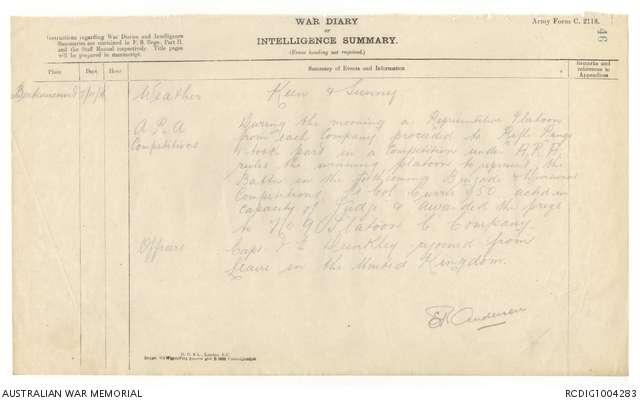 WAR DIARY
or
INTELLIGENCE SUMMARY.
(Erase heading not required.)
Army Form C. 2118.
46
Instructions regarding War Diaries and Intelligence
Summaries are contained in F. S. Regs., Part II.
and the Staff Manual respectively. Title pages
will be prepared in manuscript.
Place Date Hour Summary of Events and Information Remarks and references to Appendices
Weather Keen & Sunny
A.R.A During the morning a Representative Platoon
Competitions from each Company proceeded to Rifle Range
& took part in a Competition under A.R.A.
rules the winning platoon to represent the
Battn in the forthcoming Brigade & Divisional
Competitions. Lt Col Currie DSO acted in
capacity of Judge & awarded the prize
to No 9 Platoon C Company.
Officers Capt Dunkley rejoined from
leave in the United Kingdom.
Anderson
AUSTRALIAN WAR MEMORIAL
RCDIG1004283